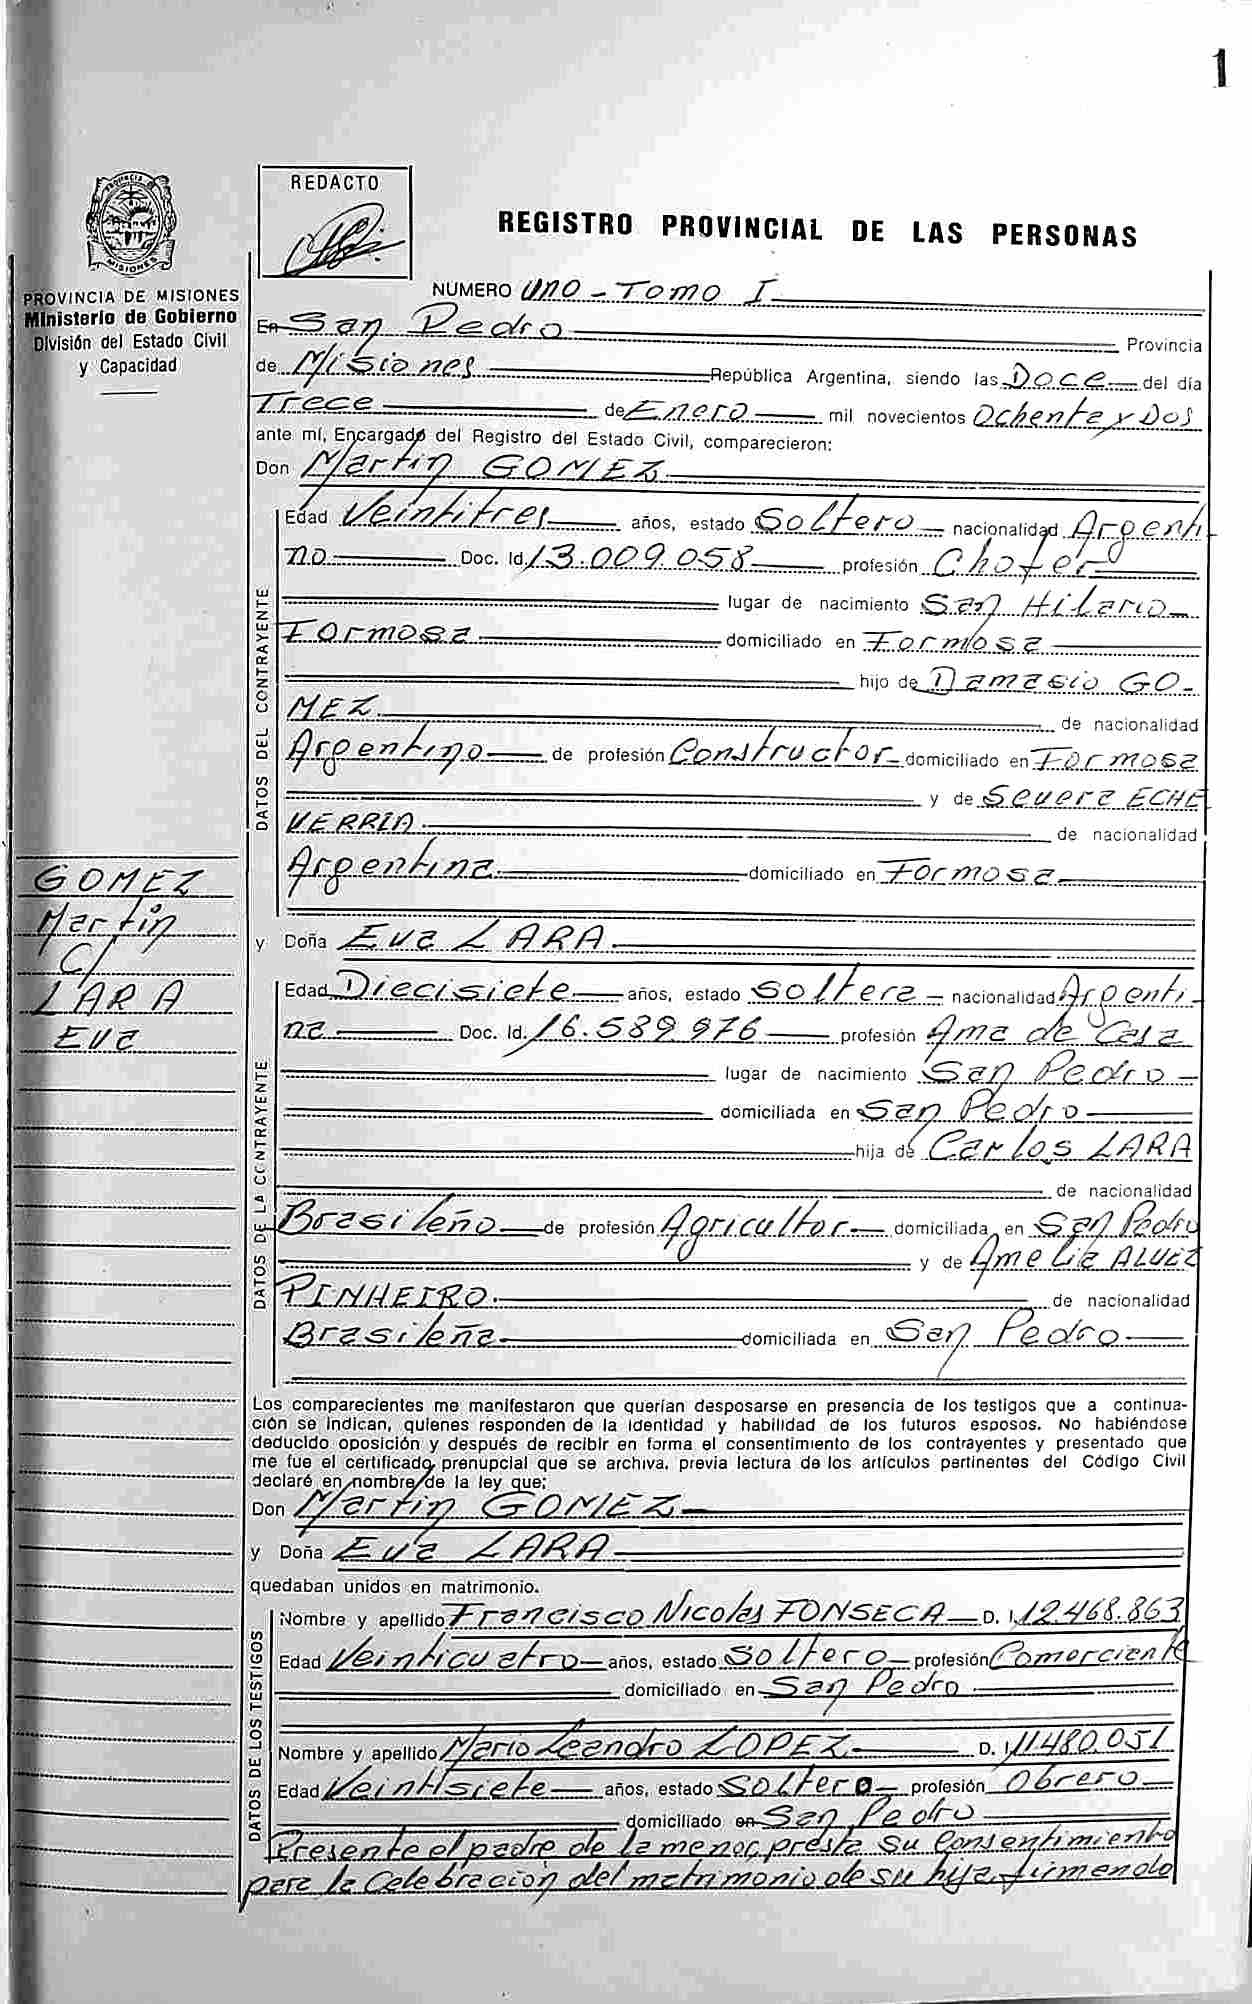 1
PROVINCIA DE MISIONES
Ministerio de Gobierno
División del Estado Civil
y Capacidad
REDACTO
REGISTRO PROVINCIAL DE LAS PERSONAS
NUMERO UNO - TOMO I
En San Pedro Provincia
de Misiones República Argentina, siendo las Doce del día
Trece de Enero mil novecientos Ochenta y Dos
ante mí, Encargado del Registro del Estado Civil, comparecieron:
Don Martin GOMEZ
DATOS DEL CONTRAYENTE
Edad Veintitres años, estado Soltero nacionalidad Argenti
no Doc. Id. 13.009.058 profesión Chofer
lugar de nacimiento San Hilario
Formosa domiciliado en Formosa
hijo de Damasio GO-
MEZ de nacionalidad
Argentino de profesión Constructor domiciliado en Formosa
y de Severa ECHE
VERRIA de nacionalidad
Argentina domiciliado en Formosa
GOMEZ
Martin
C/
LARA
Eva
y Doña Eva LARA
DATOS DE LA CONTRAYENTE
Edad Diecisiete años, estado soltera nacionalidad Argenti-
na Doc. Id. 16.589.976 profesión Ama de Casa
lugar de nacimiento San Pedro
domiciliada en San Pedro
hija de Carlos LARA
de nacionalidad
Brasileño de profesión Agricultor domiciliada en San Pedro
y de Amelia ALVEZ
PINHEIRO de nacionalidad
Brasileña domiciliada en San Pedro
Los comparecientes me manifestaron que querían desposarse en presencia de los testigos que a continua-
ción se indican, quienes responden de la identidad y habilidad de los futuros esposos. No habiéndose
deducido oposición y después de recibir en forma el consentimiento de los contrayentes y presentado que
me fue el certificado prenupcial que se archiva, previa lectura de los artículos pertinentes del Código Civil
declaré en nombre de la ley que:
Don Martin GOMEZ
y Doña Eva LARA
quedaban unidos en matrimonio.
DATOS DE LOS TESTIGOS
Nombre y apellido Francisco Nicolas FONSECA D. I. 12.468.863
Edad Veinticuatro años, estado Soltero profesión Comerciante
domiciliado en San Pedro
Nombre y apellido Mario Leandro LOPEZ D. I. 11.480.051
Edad Veintisiete años, estado Soltero profesión Obrero
domiciliado en San Pedro
Presente el padre de la menor, presta su Consentimiento
para la Celebración del matrimonio de su hija, firmando